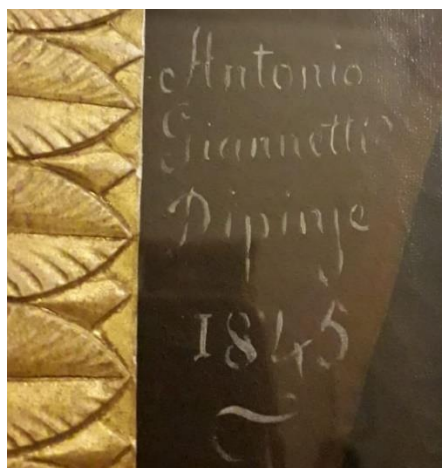 Antonio
Giannetti
Dipinje
1845